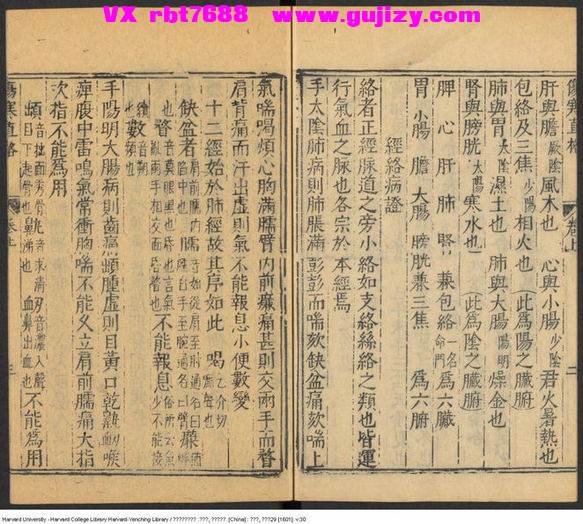 VX rbt7688 www.gujizy.com
傷寒直格 卷上 二
肝與膽厥陰風木也 心與小腸少陰君火暑熱也
包絡及三焦少陽相火也此爲陽之臟腑
脾與胃太陰濕土也 肺與大腸陽明燥金也
腎與膀胱太陽寒水也此爲陰之臟腑
脾 心 肝 肺 腎 兼包絡一名命門 爲六臟
胃 小腸 膽 大腸 膀胱兼三焦 爲六腑
經絡病證
絡者正經脉道之旁小絡如支絡絲絡之類也皆運
行氣血之脉也各宗於本經焉
手太陰肺病則肺脹滿彭彭而喘欬缺盆痛欬喘上
氣喘喝煩心胸滿臑臂内前廉痛甚則交兩手而瞀
肩背痛而汗出虚則氣不能報息小便數變
十二經始於肺經故其序如此 喝乙介切
缺盆者
瞀 不能報息
數頻也
手陽明大腸病則齒痛䪼腫虚則目黄口乾鼽衂喉
痺腹中雷鳴氣常衝胸喘不能久立肩前臑痛大指
次指不能爲用
䪼音拙面秀骨 目下起骨也 鼽音求 清 衂 血鼻出血也不能爲用
傷寒直格 卷上
Harvard University - Harvard College Library Harvard-Yenching Library / ???????? :???, ?????. [China] : ???, ???29 [1601]. v.30